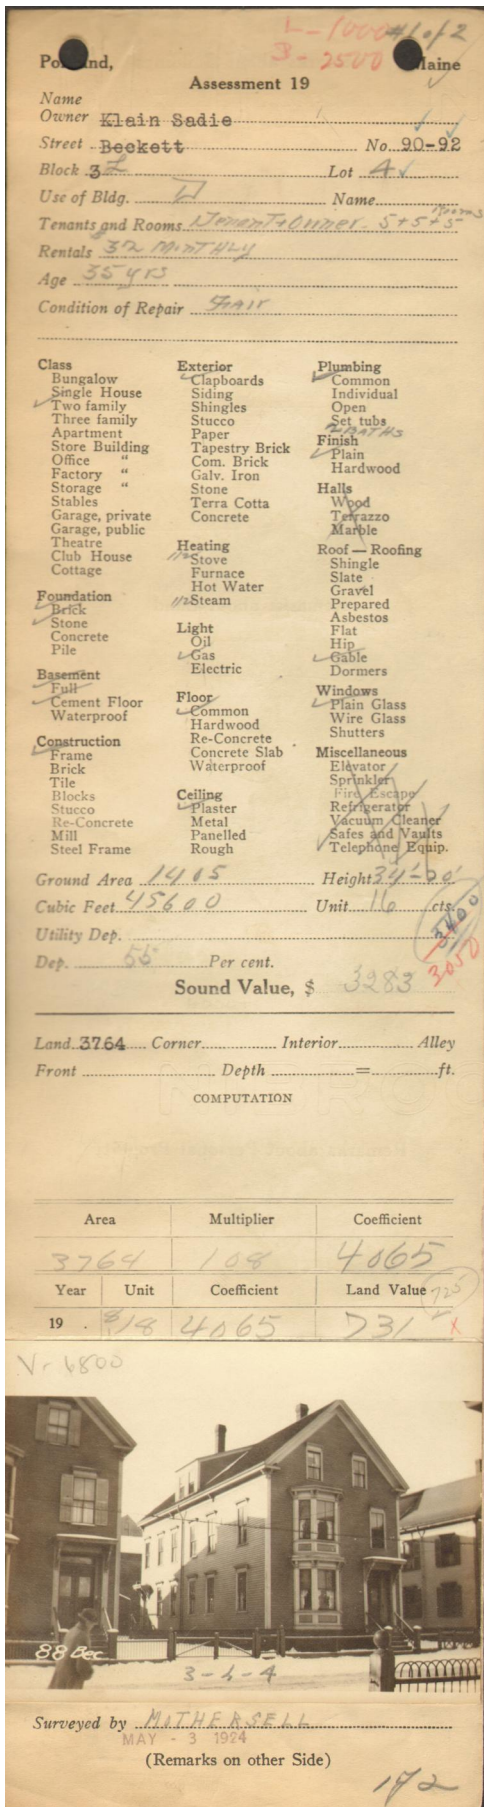 L - 1000 #1 of 2
B - 2500
Portland, Maine
Assessment 19
Name
Owner Klain Sadie
Street Beckett No. 90-92
Block 3 L Lot 4
Use of Bldg. Name
Tenants and Rooms Tenent+Owner. 5+5+5 Rooms
Rentals 32 MONTHLY
Age 35 yrs
Condition of Repair FAIR
Class
Bungalow
Single House
Two family
Three family
Apartment
Store Building
Office "
Factory "
Storage "
Stables
Garage, private
Garage, public
Theatre
Club House
Cottage
Foundation
Brick
Stone
Concrete
Pile
Basement
Full
Cement Floor
Waterproof
Construction
Frame
Brick
Tile
Blocks
Stucco
Re-Concrete
Mill
Steel Frame
Exterior
Clapboards
Siding
Shingles
Stucco
Paper
Tapestry Brick
Com. Brick
Galv. Iron
Stone
Terra Cotta
Concrete
Heating
1/2 Stove
Furnace
Hot Water
1/2 Steam
Light
Oil
Gas
Electric
Floor
Common
Hardwood
Re-Concrete
Concrete Slab
Waterproof
Ceiling
Plaster
Metal
Panelled
Rough
Plumbing
Common
Individual
Open
Set tubs
2 BATHS
Finish
Plain
Hardwood
Halls
Wood
Terrazzo
Marble
Roof — Roofing
Shingle
Slate
Gravel
Prepared
Asbestos
Flat
Hip
Gable
Dormers
Windows
Plain Glass
Wire Glass
Shutters
Miscellaneous
Elevator
Sprinkler
Fire Escape
Refrigerator
Vacuum Cleaner
Safes and Vaults
Telephone Equip.
Ground Area 1405 Height 34'-20'
Cubic Feet 45600 Unit 16 cts.
Utility Dep. 3400
Dep. 55 Per cent. 3050
Sound Value, $ 3283
Land 3764 Corner Interior Alley
Front Depth = ft.
COMPUTATION
Area Multiplier Coefficient
3764 108 4065
Year Unit Coefficient Land Value 725
19 . $18 4065 731 x
V- 6800
88 Bec
3-L-4
Surveyed by MOTHERSELL
MAY - 3 1924
(Remarks on other Side)
1 of 2